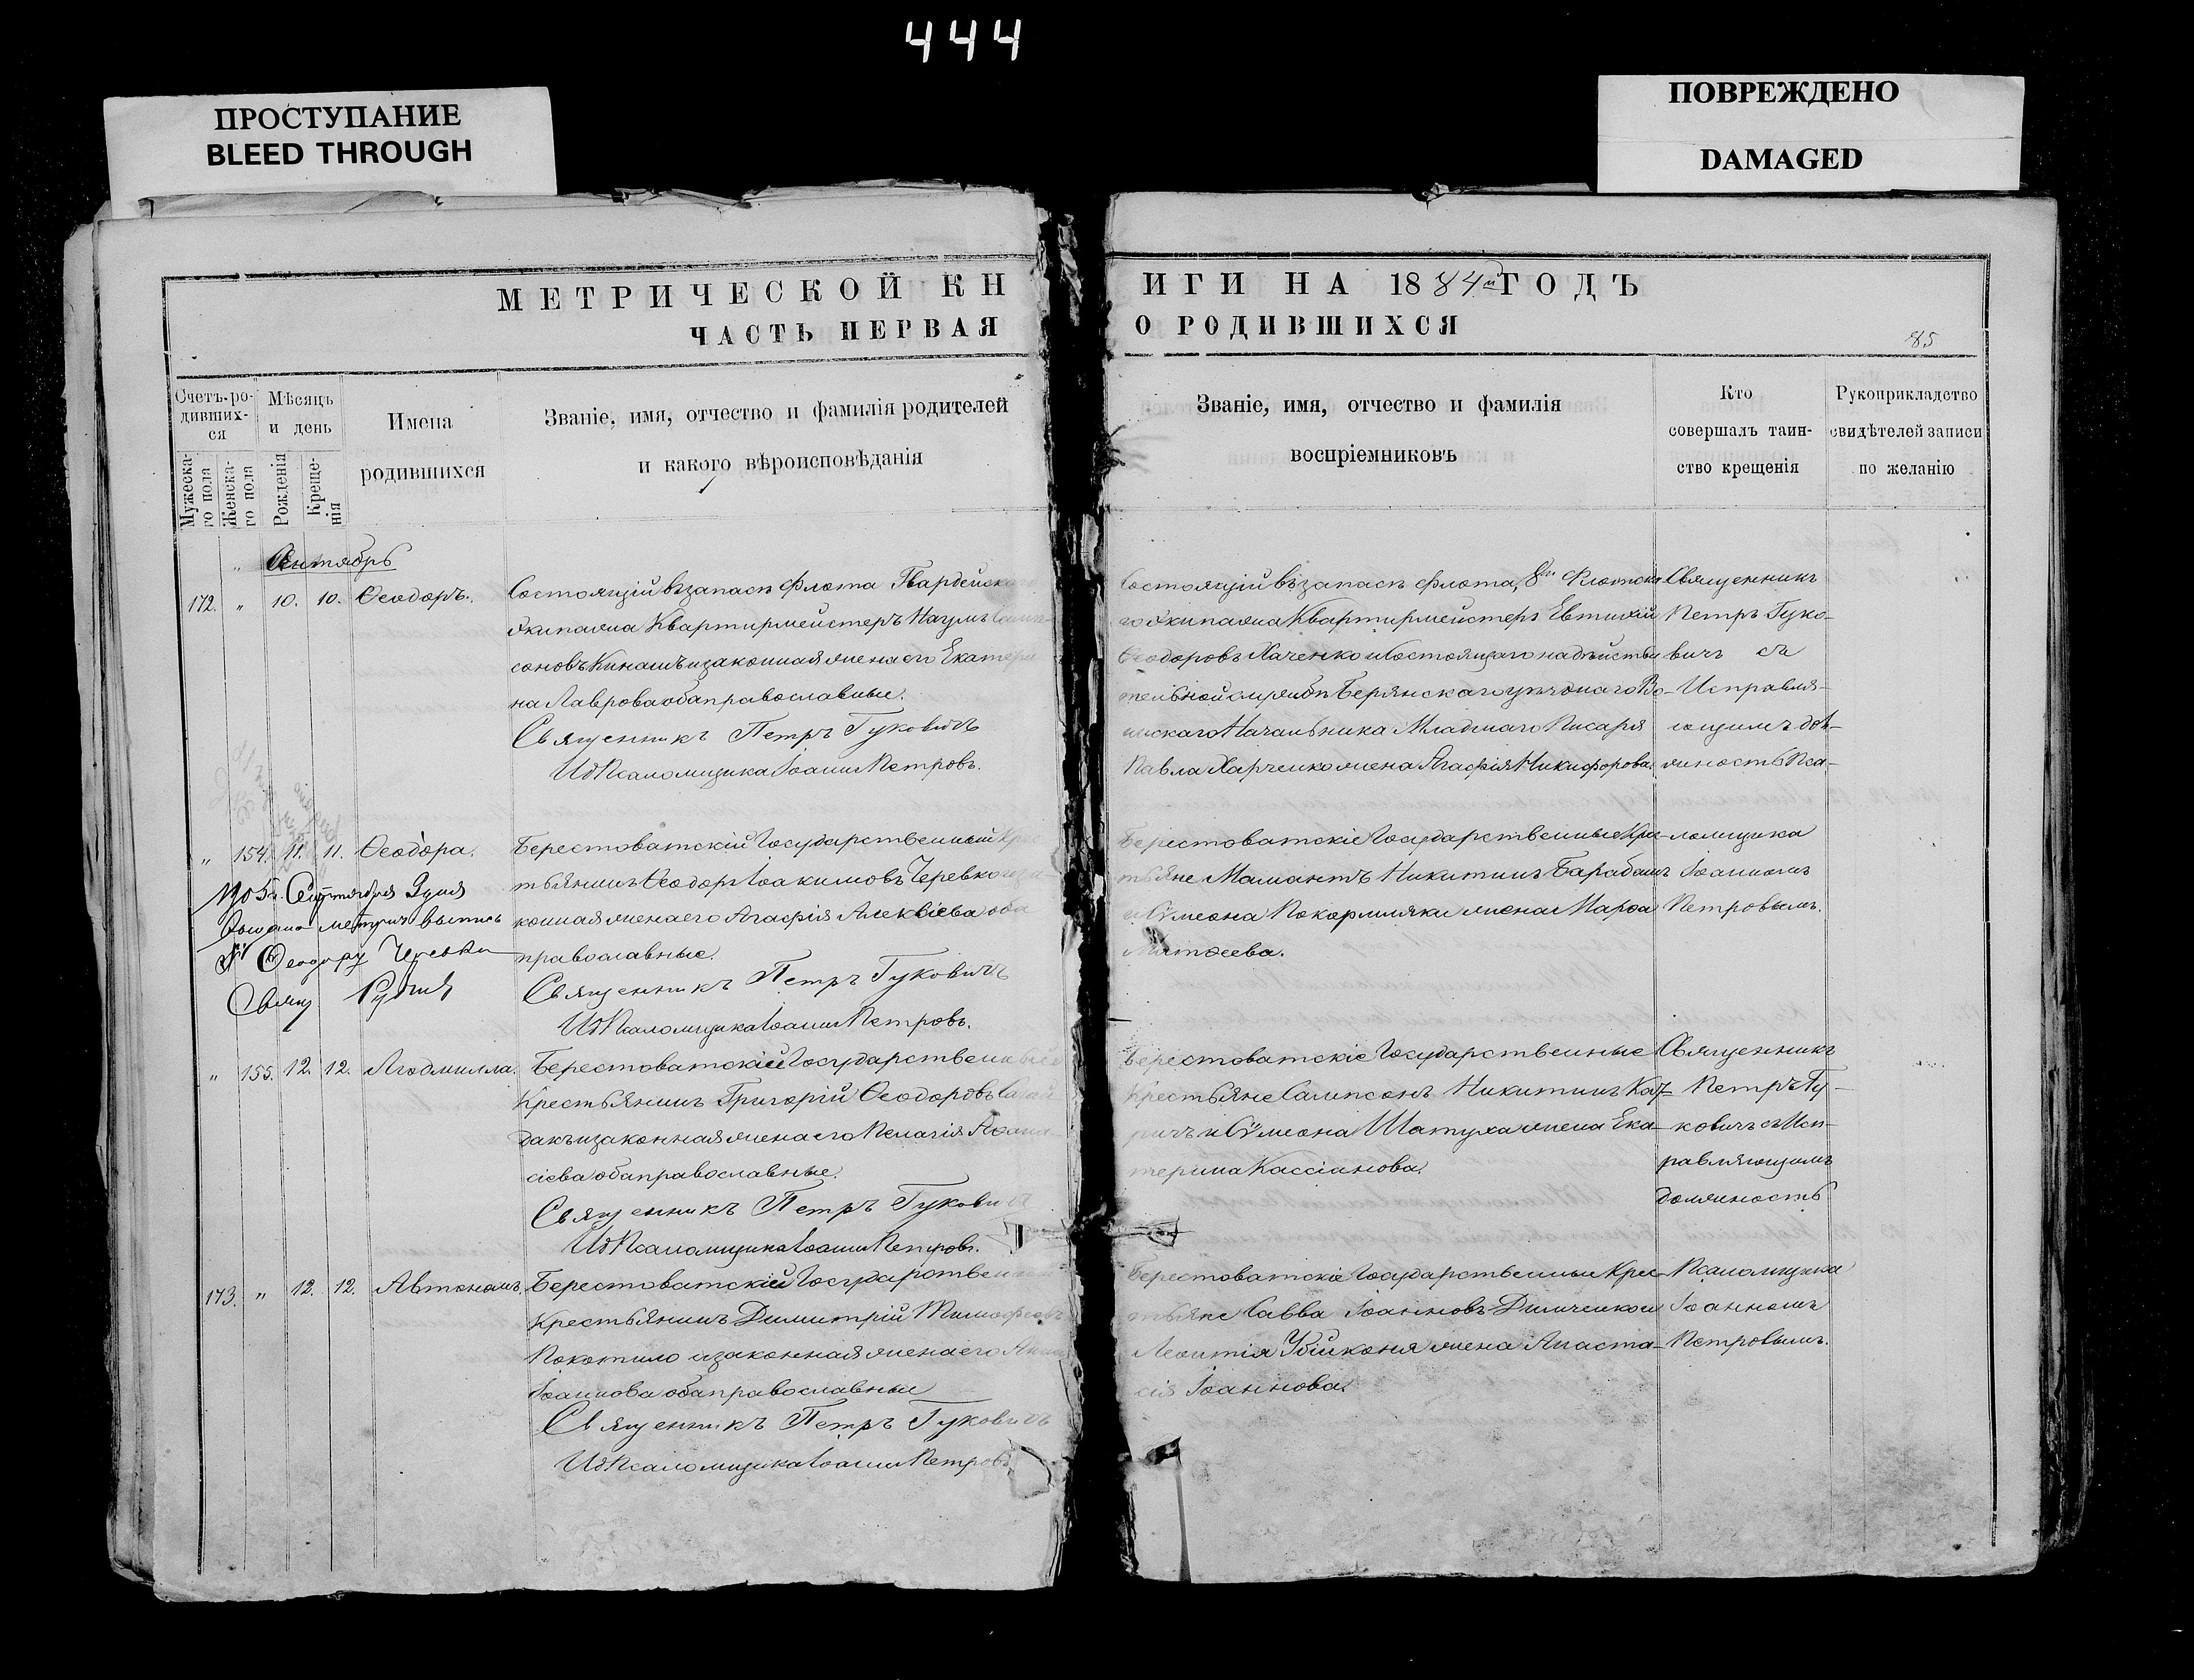 444
ПРОСТУПАНИЕ
BLEED THROUGH
ПОВРЕЖДЕНО
DAMAGED
МЕТРИЧЕСКОЙ КН
ЧАСТЬ ПЕРВАЯ
ИГИ НА 1884й ГОДЪ
О РОДИВШИХСЯ
85
Счетъ ро-
дивших-
ся
Мужеска-
го пола
Женска-
го пола
Мѣсяцъ
и день
Рожденія
Креще-
нія
Имена
родившихся
Званіе, имя, отчество и фамилія родителей
и какого вѣроисповѣданія
Званіе, имя, отчество и фамилія
воспріемниковъ
Кто
совершалъ таин-
ство крещенія
Рукоприкладство
свидѣтелей записи
по желанію
" Октябрь
172. " 10. 10. Ѳеодоръ.
Состоящій въ запасѣ флота Гвардейска
экипажа Квартирмейстеръ Наумъ Самп-
соновъ Кинашъ и законная жена его Екатери
на Лаврова оба православные.
Священникъ Петръ Гуковичъ
ИдПсаломщика Іоаннъ Петровъ.
Состоящій въ запасѣ флота, 8го Флотска
го экипажа Квартирмейстеръ Евтихій
Ѳеодоровъ Ткаченко и Состоящаго на дѣйстви
тельной службѣ Бердянскаго уѣзднаго Во-
инскаго Начальника Младшаго Писаря
Павла Харченко жена Агафія Никифорова.
Священникъ
Петръ Гуко-
вичъ съ
Исправля-
ющимъ дол-
жность Пса-
" 154. 11. 11. Ѳеодора.
Берестоватскій Государственный Крес
тьянинъ Ѳеодоръ Іоакимовъ Черевко и за
конная жена его Агафія Алексіева оба
православные.
Священникъ Петръ Гуковичъ
ИдПсаломщика Іоаннъ Петровъ.
1905 г. Сентября 9 дня
метрич. выпись
Ѳеодору Черевко
Свящ.
Берестоватскіе Государственные Крес-
тьяне Мамантъ Никитинъ Барабашъ
и Сѵмеона Покормляки жена Марѳа
Матѳеева.
ломщика
Іоанномъ
Петровымъ.
" 155. 12. 12. Людмилла.
Берестоватскій Государственный
Крестьянинъ Григорій Ѳеодоровъ Сагай
дакъ и законная жена его Пелагія Аѳана
сіева оба православные.
Священникъ Петръ Гукович
ИдПсаломщика Іоаннъ Петровъ.
Берестоватскіе Государственные
Крестьяне Сампсонъ Никитинъ
и Сѵмеона Шатуха жена Ека-
терина Кассіанова.
Священникъ
Петръ Гу-
ковичъ съ Исп-
равляющимъ
должность
173. " 12. 12. Автономъ.
Берестоватскій Государственный
Крестьянинъ Димитрій Тимофеевъ
Покотило и законная жена его Анна
Іоаннова оба православные
Священникъ Петръ Гуковичъ
ИдПсаломщика Іоаннъ Петровъ
Берестоватскіе Государственные Крес-
тьяне Савва Іоанновъ Димченко и
Леонтія Убійконя жена Анаста-
сія Іоаннова.
Псаломщика
Іоанномъ
Петровымъ.